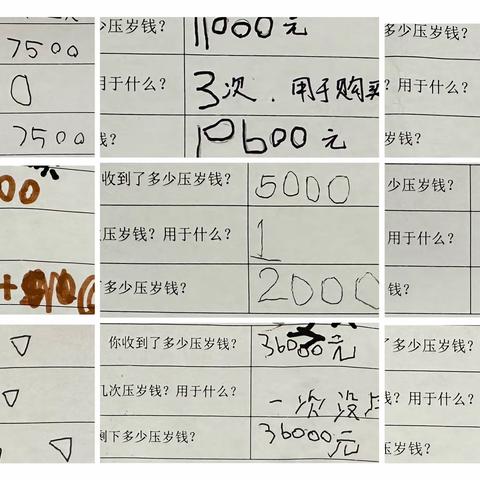 7500
少压岁钱?
11000元
多少压岁钱?
0
用于什么?
3次.用于购买
用于什么?
7500
钱?
10600元
岁钱?
00
收到了多少压岁钱?
5000
少压岁钱?
压岁钱?用于什么?
1
用于什么?
多少压岁钱?
2000
钱?
你收到了多少压岁钱?
36000元
了多少压岁钱?
几次压岁钱?用于什么?
一次没
钱?用于什么?
剩下多少压岁钱?
36000元
压岁钱?